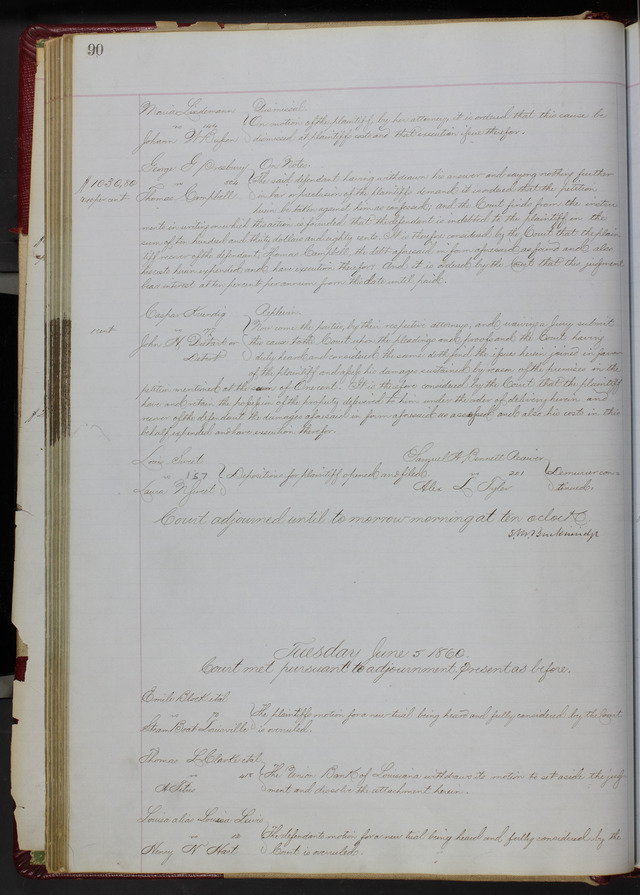 90
Dismissed
On motion of the plaintiff, by her attorney it is ordered that this cause be
dismissed at plaintiffs costs and that execution issue therefor.
George G Presbury On Note.
The said defendant having withdrawn his answer and saying nothing further
$1030,80 Thomas Campbell in bar or preclusion of the plaintiffs demand it is ordered that the petition
herein be taken against him as confessed, and the Court finds from the instru
ments in writing on which this action is founded that the defendant is indebted to the plaintiff in the
sum of ten hundred and thirty dollars and eighty cents. It is therefore considered by the Court that the plain
tiff recover of the defendant, Thomas Campbell, the debt aforesaid in form aforesaid as found and also
his costs herein expended and have execution therefor. And it is ordered by the Court that this judgment
bear interest at ten percent per annum from the date until paid.
Casper Replevin
Now come the parties, by their respective attorneys, and waiving a Jury submit
1 cent John H this cause to the Court upon the pleadings and proofs and the Court having
duly heard and considered the same doth find the issue herein joined in favor
of the plaintiff and assess his damages sustained by reason of the premises in the
petition mentioned at the sum of One cent. It is therefore considered by the Court that the plaintiff
have and retain the possession of the property delivered to him under the order of delivery herein and
recover of the defendant the damages aforesaid in form aforesaid as assessed and also his costs in this
behalf expended and have execution therefor.
Sweet
157 Depositions for plaintiff opened and filed.
Laura N Sweet
Samuel A Bennett Receiver
vs 201 Demurrer con-
Alex L Tyler tinued.
Court adjourned until to morrow morning at ten oclock
S. M. Breckinridge
Tuesday June 5 1860.
Court met pursuant to adjournment, Present as before.
Emile Block et al
The plaintiffs motion for a new trial being heard and fully considered by the Court
Steam Boat Louisville is overruled.
Thomas L Clark et al
The Union Bank of Louisiana withdraws its motion to set aside the judg-
ment and dissolve the attachment herein.
Louisa alias Louisa Lewis
vs 12 The defendants motion for a new trial being heard and fully considered by the
Henry N Hart Court is overruled.